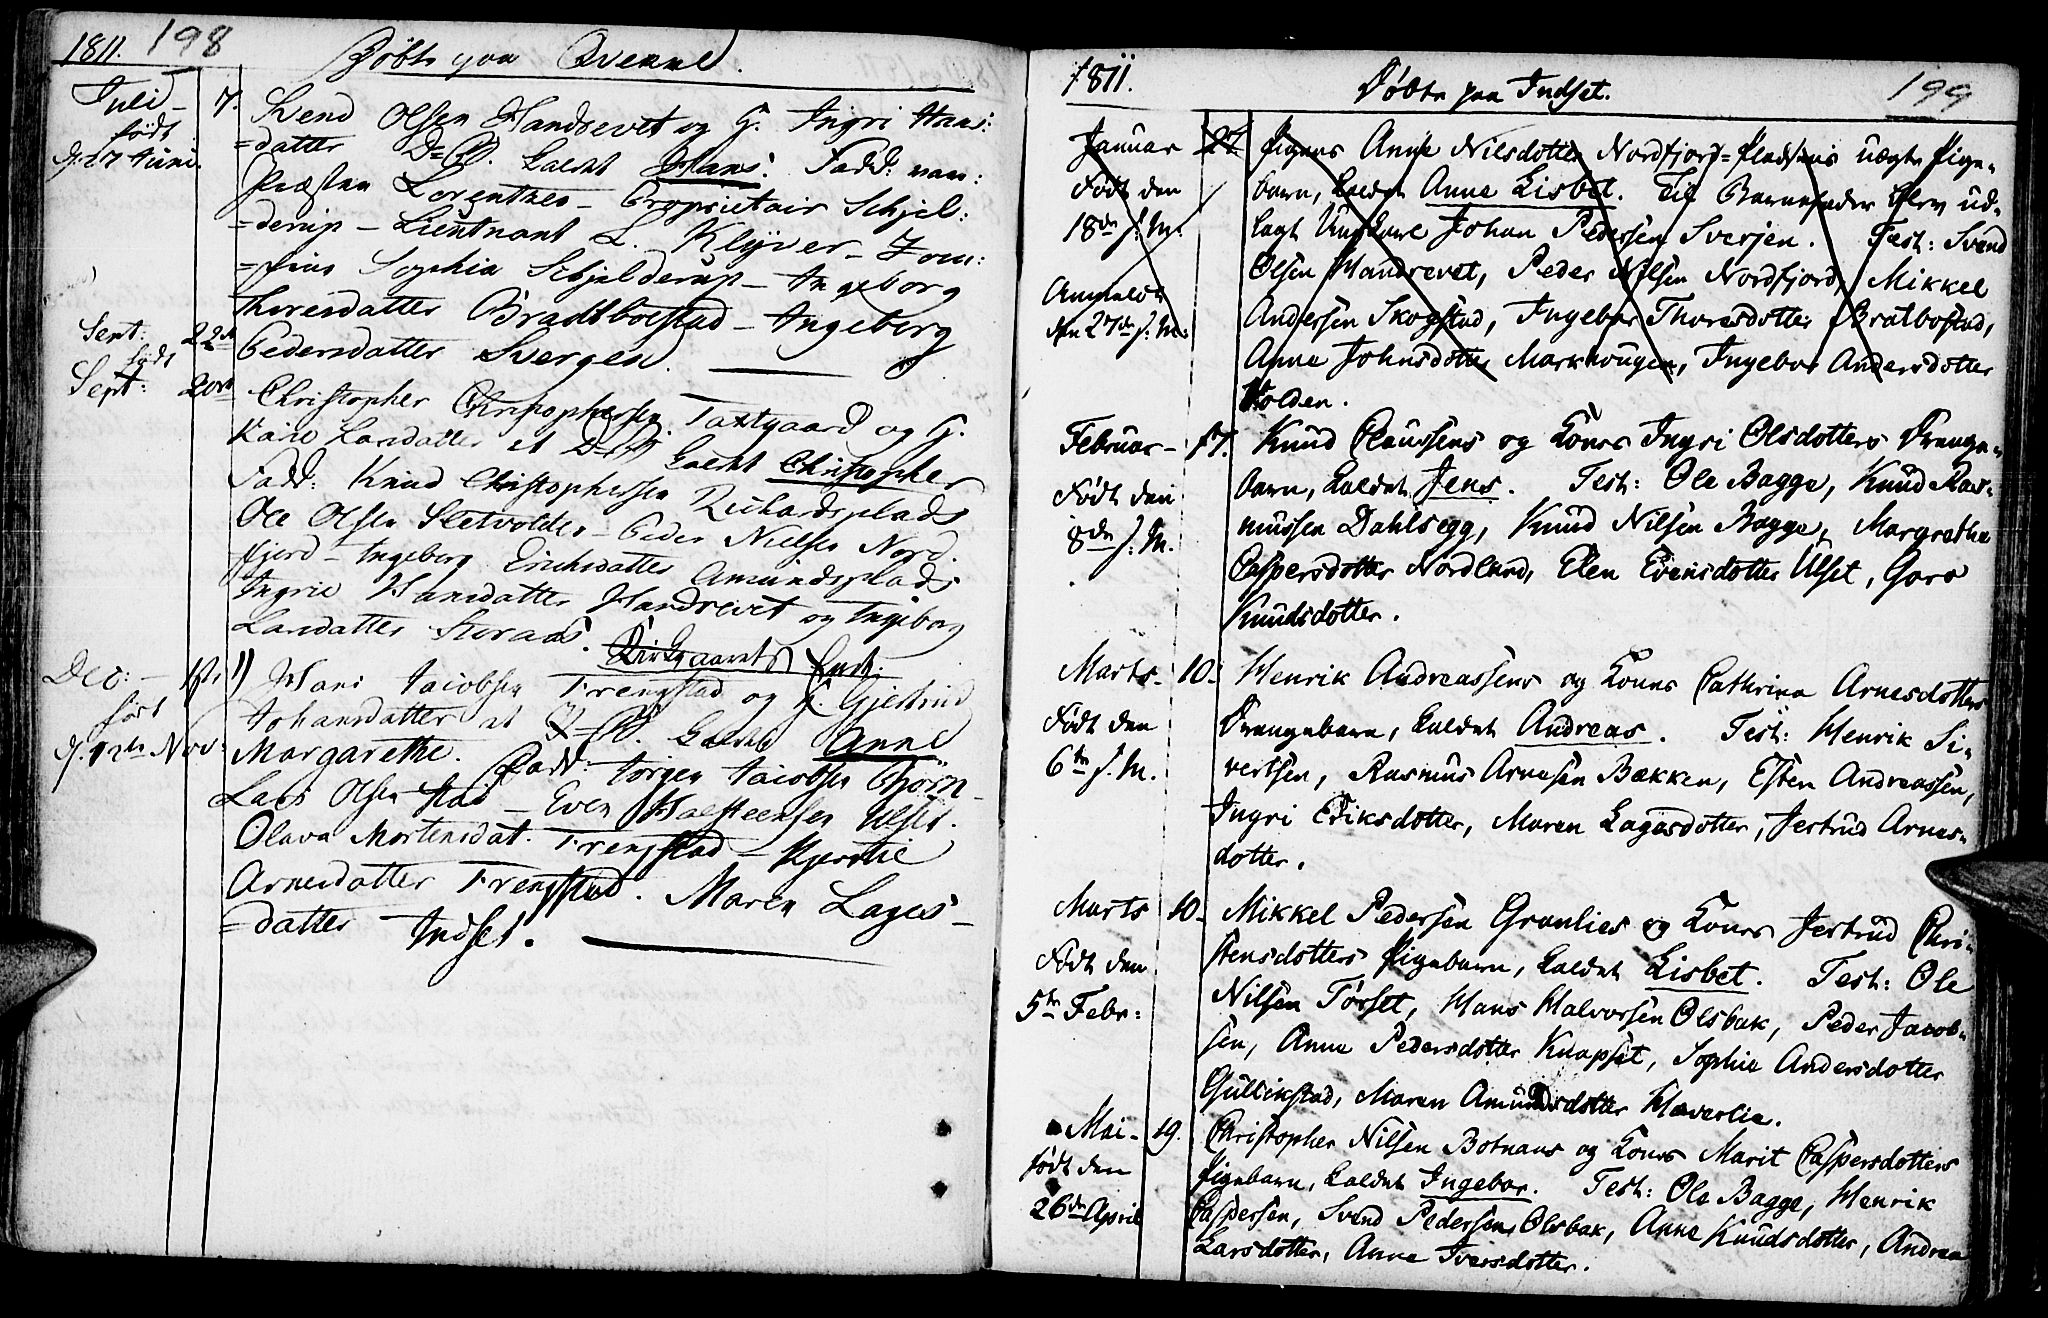 1811. 198
Döbte paa Qvenne.
Juli 7.
födt
d. 27 Juni.
Svend Olsen Handrevet og H. Ingri Hans:
=datter D=B. kaldet Hans. Fadd: vare:
Præsten Lorentzen – Proprietair Schjel:
=derup – Lieutnant L. Klÿver – Jom:
=frue Sophia Schjelderup – Ingeborg
Thoresdatter Bradtboestad – Ingeborg
Pedersdatter Svergen.
Sept: 22de
födt
Sept: 20de
Christopher Christophersen Taxtgaard og H.
Kari Larsdatter et D=B kaldt Christopher
Fadd: Knud Christophersen Richardsplads
Ole Olsen Sletvolden – Peder Nielsen Nord:
fjord – Ingeborg Erichsdatter Amundsplads
Ingrie Hansdatter Handrevet og Ingeborg
Larsdatter Storaas.
Dec: – 1ste
födt
d. 12te Nov:
1) Hans Jacobsen Trengstad og H. Gjertrud
Johansdatter et P=B. kaldet Anne
Margarethe. Fadd: Jörgen Jacobsen Björn
Lars Olsen Stai – Even Halsteensen Ulset.
Olava Mortensdat. Trengstad – Kjerstie
Arnesdatter Trengstad. Maren Lages=
=datter Indset.
1811. Döbte paa Indset. 199
Januar 27.
Födt den
18de s: M.
Anmeldt
den 27de s: M:
Pigens Anne Nilsdotter Nordfjord=Pladsens uægte Pige=
barn, kaldet Anne Lisbet. Til Barnefader blev ud=
lagt Ungkarl Johan Pedersen Sverjen. Test: Svend
Olsen Handrevet, Peder Nilsen Nordfjord, Mikkel
Andersen Skogstad, Ingebor Thoresdotter Bratbostad,
Anne Johnsdotter Markhougen, Ingebor Andersdotter
Volden.
Februar – 17.
Födt den
8de s: M.
Knud Claussens og Kones Ingri Olsdotters Drenge=
barn, kaldet Jens. Test: Ole Bagge, Knud Ras=
mussen Dahlsegg, Knud Nilsen Bagge, Margrethe
Caspersdotter Nordlund, Elen Evensdotter Ulset, Goro
Knudsdotter.
Marts – 10.
Födt den
6te s. M.
Henrik Andreassens og Kones Cathrina Arnesdotters
Drengebarn, kaldet Andreas. Test: Henrik Si=
vertsen, Rasmus Arnesen Bækken, Esten Andreassen,
Ingri Eriksdotter, Maren Lagesdotter, Jertrud Arnes=
dotter.
Marts 10.
Födt den
5te Febr:
Mikkel Pedersen Granlies og Kones Jertrud Chri=
stensdotters Pigebarn, kaldet Lisbet. Test: Ole
Nilsen Törset, Hans Halvorsen Olsbak, Peder Jacob=
sen, Anne Pedersdotter Knapset, Sophie Andersdotter
Gullikstad, Maren Amundsdotter Haverlie.
Mai – 19.
födt den
26de April
Christopher Nilsen Botnans og Kones Marit Caspersdotters
Pigebarn, kaldet Ingebor. Test: Ole Bagge, Henrik
Caspersen, Svend Pedersen Olsbak, Anne Knudsdotter, Andrea
Larsdotter, Anne Iversdotter.